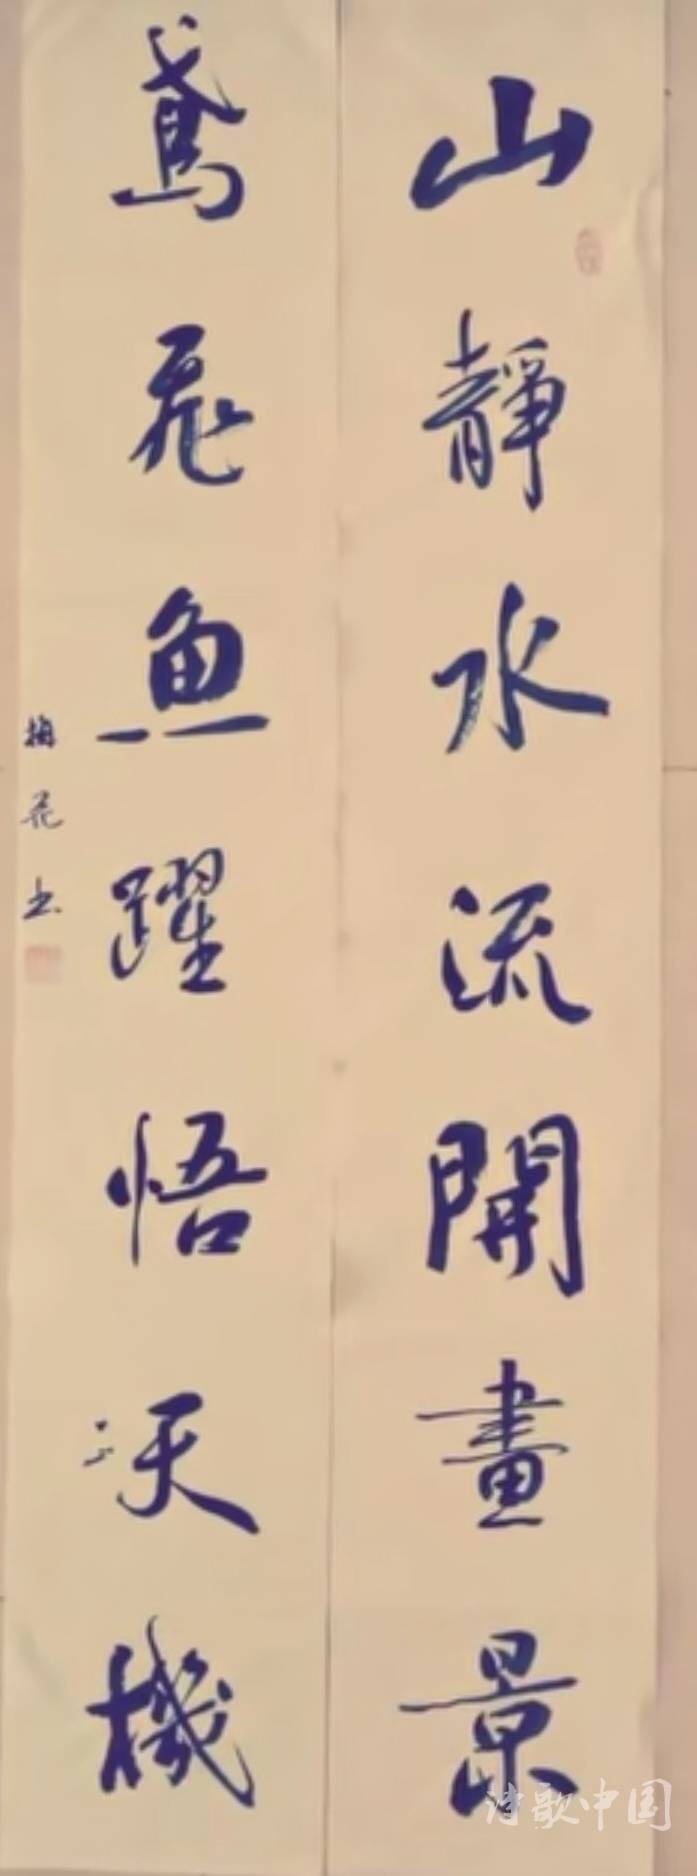 山靜水流開畫景
鳶飛魚躍悟天機
梅花书
诗歌中国